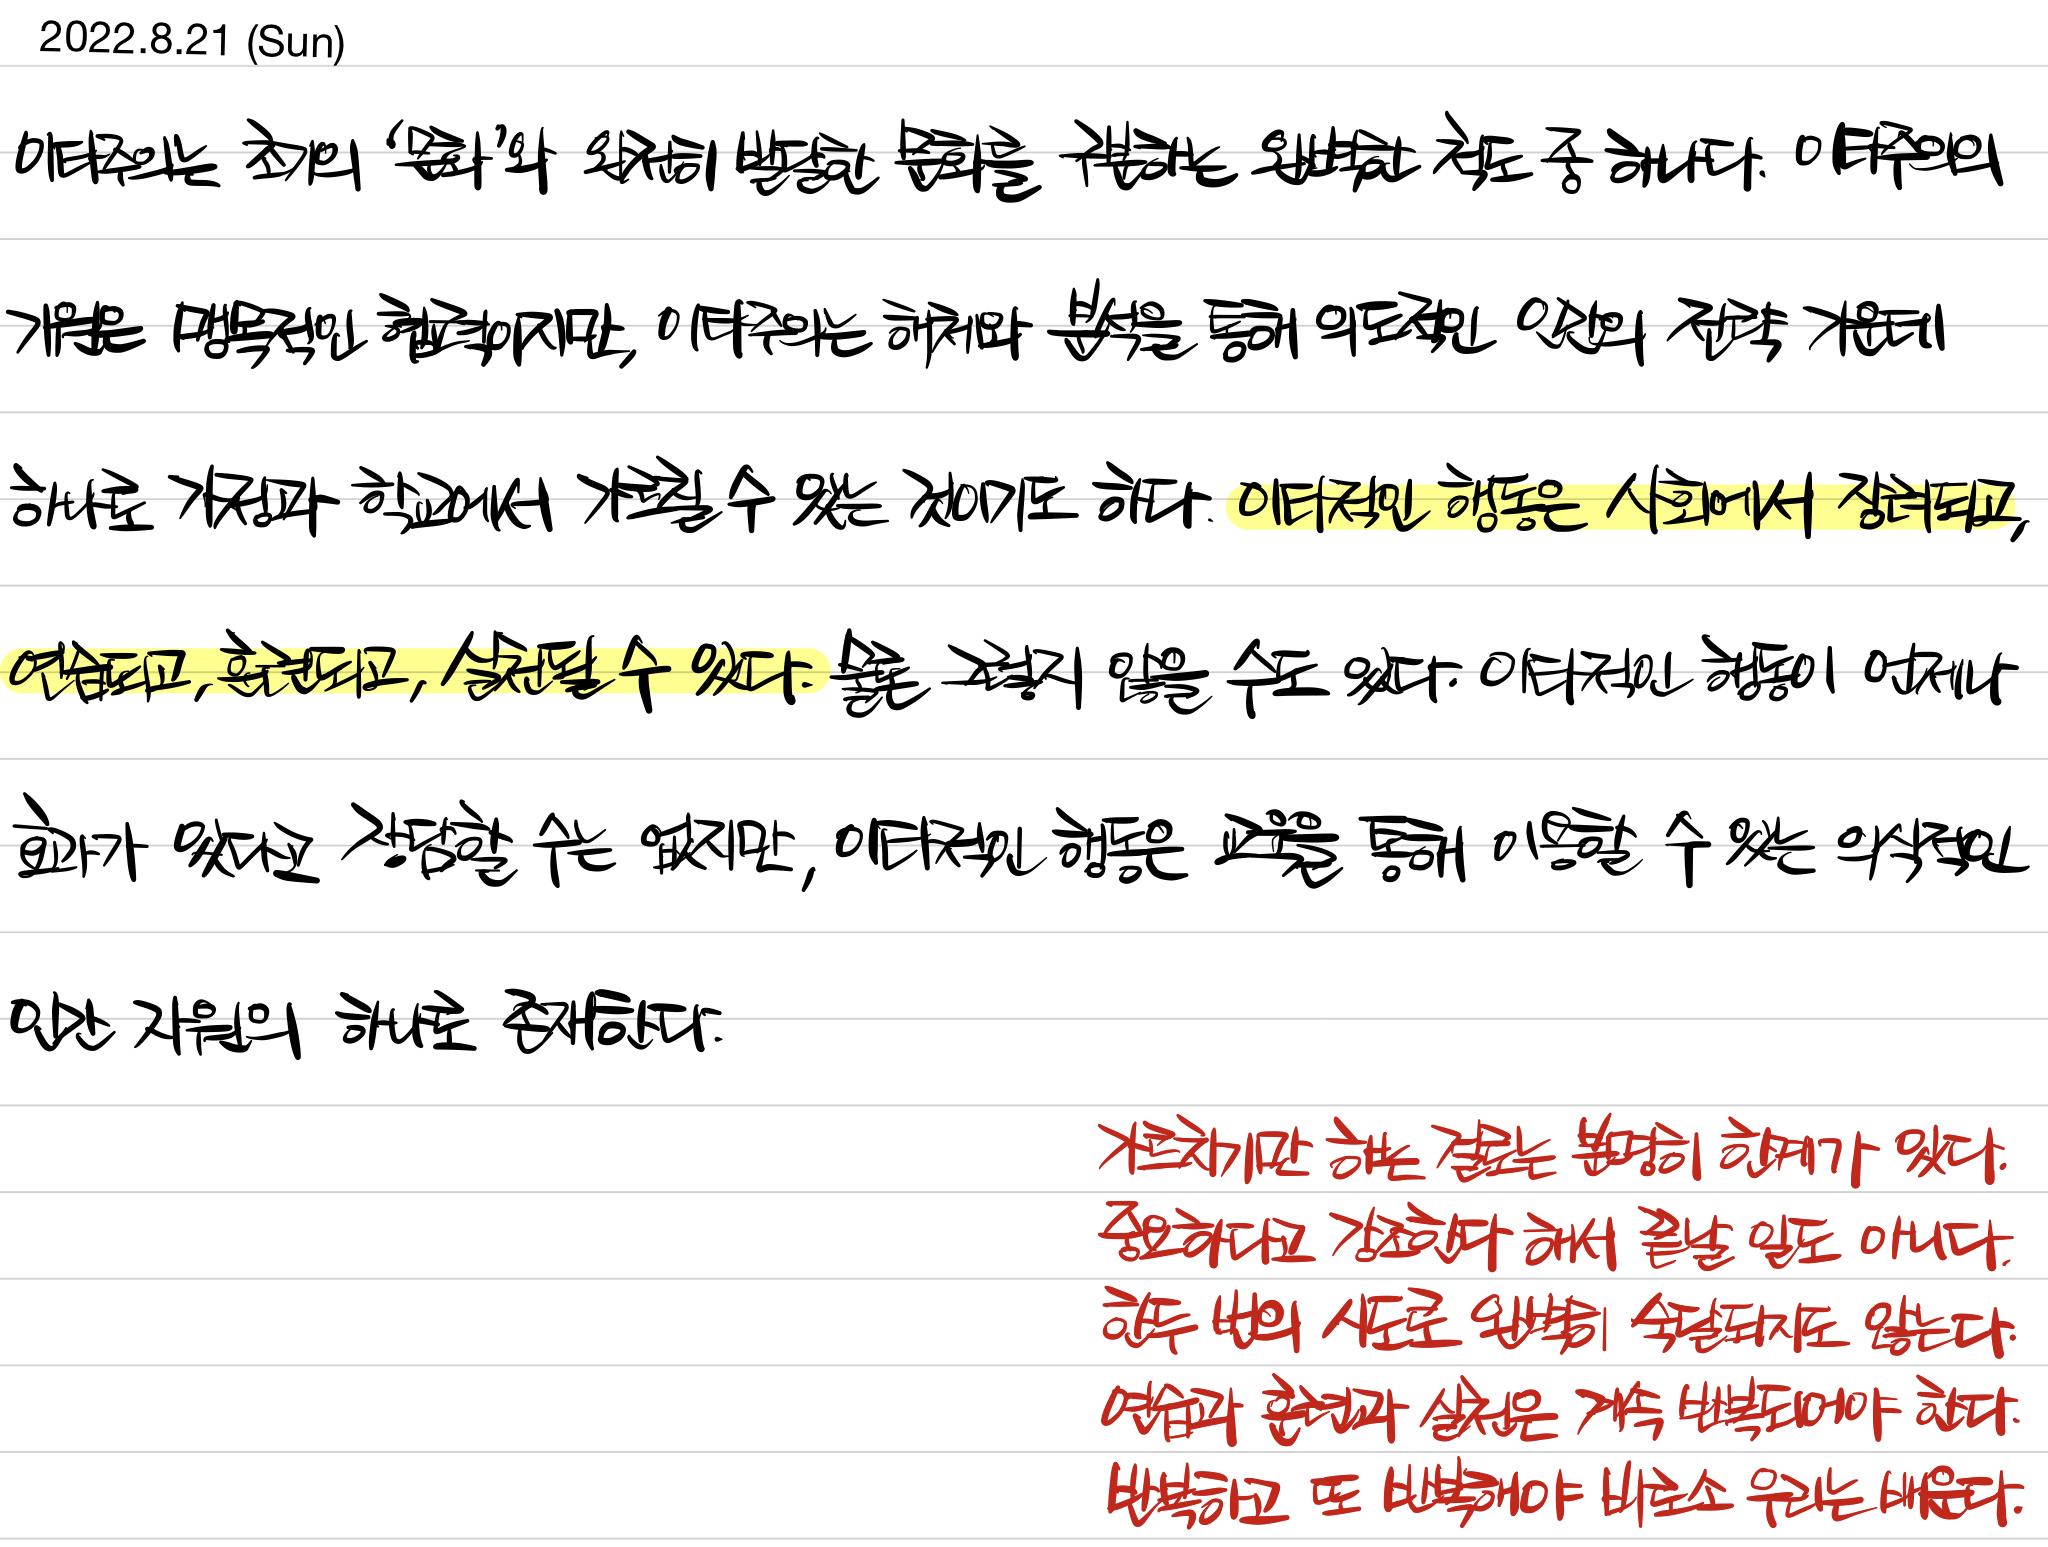 2022.8.21 (Sun)
이타주의는 초기의 '문화'와 완전히 발달한 문화를 구분하는 완벽한 척도 중 하나다. 이타주의의
개원은 맹목적인 협력이지만, 이타주의는 해체와 분석을 통해 의도적인 인간의 전략 가운데
하나로 가정과 학교에서 가르칠 수 있는 것이기도 하다. 이타적인 행동은 사회에서 장려되고,
연습되고, 훈련되고, 실천될 수 있다. 물론 그렇지 않을 수도 있다. 이타적인 행동이 언제나
효과가 있다고 장담할 수는 없지만, 이타적인 행동은 교육을 통해 이용할 수 있는 의식적인
인간 자원의 하나로 존재한다.
가르치기만 해는 걸로는 분명히 한계가 있다.
중요하다고 강조한다 해서 끝날 일도 아니다.
한두 번의 시도로 완벽히 숙달되지도 않는다.
연습과 훈련과 실천은 계속 반복되어야 한다.
반복하고 또 반복해야 비로소 우리는 배운다.